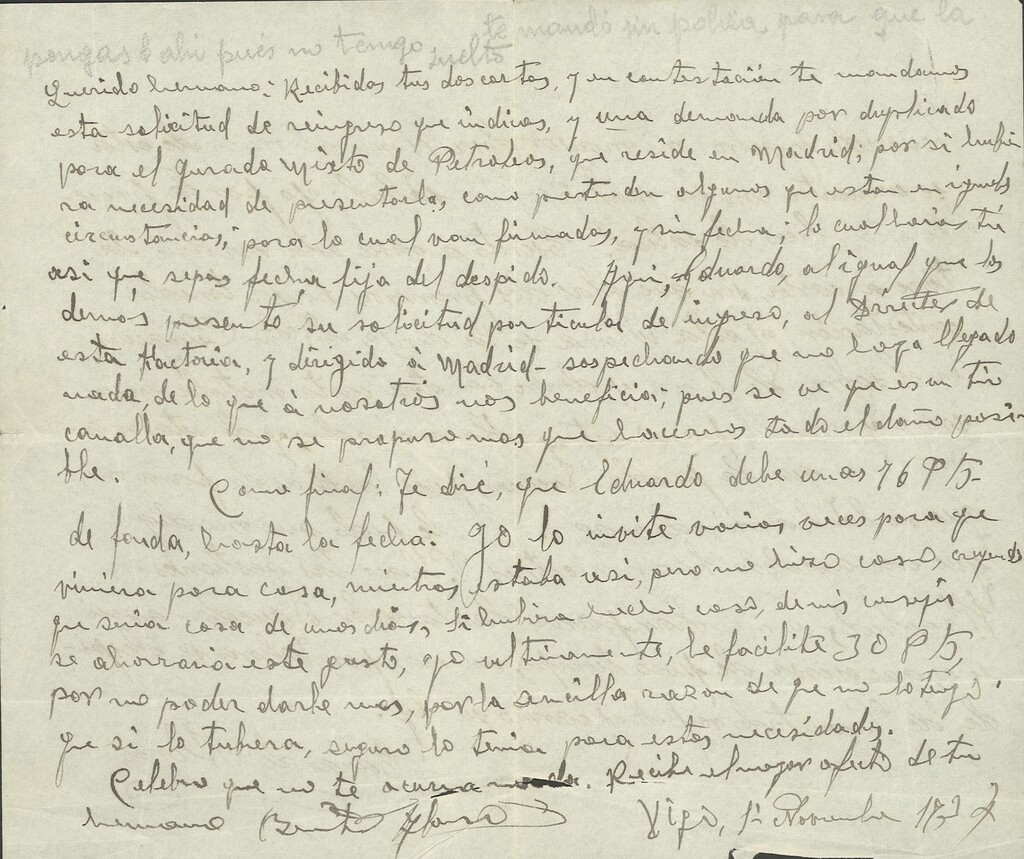 te mandó sin poliza para que la
pongas ahi pués no tengo suelto
Querido hermano: Recibidas tus dos cartas, y en contestación te mandamos
esta solicitud de reingreso que indicas, y una demanda por duplicado
para el Jurado Mixto de Petroleos, que reside en Madrid; por si hubie
ra necesidad de presentarla, como pretenden algunos que estan en iguales
circustancias; para lo cual van firmados, y sin fecha; lo cual harás tú
asi que sepas fecha fija del despido. Aqui, Eduardo, al igual que los
demás presentó su solicitud particular de ingreso, al Director de
esta Factoria, y dirigido á Madrid - sospechando que no haya llegado
nada, de lo que á nosotros nos beneficia; pues se ve que es un tio
canalla, que no se propuso mas que hacernos todo el daño posi-
ble. Como final: Te diré, que Eduardo debe unas 76 Pts-
de fonda, hasta la fecha: yo lo invite varias veces para que
viniera para casa, mientras estaba asi, pero no hizo caso, creyendo
que seria cosa de unos dias, si hubiera hecho caso, de mis consejos
se ahorraria este gasto, yo ultimamente, le facilite 30 Pts,
por no poder darle mas, por la sencilla razon de que no lo tengo.
que si lo tubera, seguro lo tenia para estas necesidades.
Celebro que no te ocurra nada. Recibe el mejor afecto de tu
hermano Vigo, 1º Noviembre 193